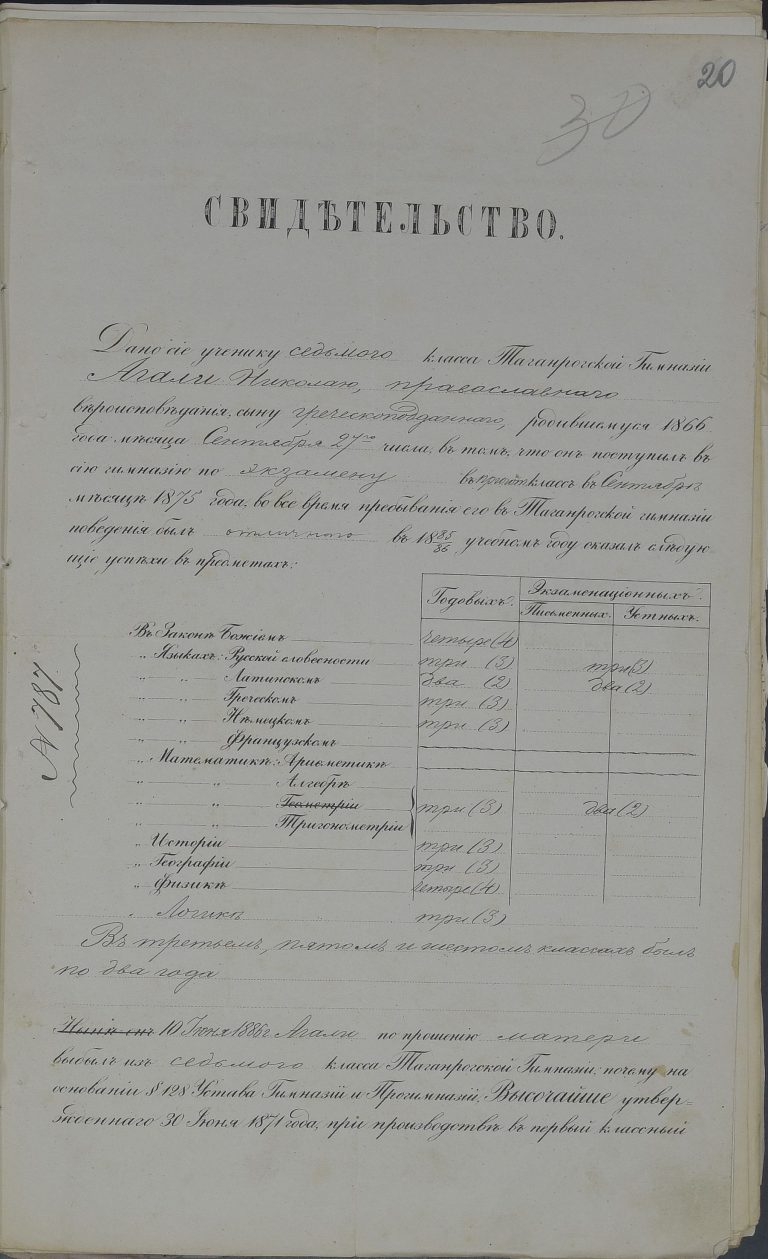 20
30
СВИДѢТЕЛЬСТВО.
Дано сіе ученику седьмого класса Таганрогской Гимназіи
Агали Николаю, православнаго
вѣроисповѣданія, сыну грекоподданнаго, родившемуся 1866
года мѣсяца Сентября 27го числа, въ томъ, что онъ поступилъ въ
сію гимназію по экзамену въ классъ въ Сентябрѣ
мѣсяцѣ 1875 года, во все время пребыванія его въ Таганрогской гимназіи
поведенія былъ отличнаго въ 1885/86 учебномъ году оказалъ слѣдую-
щіе успѣхи въ предметахъ:
Годовыхъ. Экзаменаціонныхъ.
Письменныхъ. Устныхъ.
Въ Законѣ Божіемъ четыре (4)
„ Языкахъ: Русской словесности три (3) три (3)
„ „ Латинскомъ два (2) два (2)
„ „ Греческомъ три (3)
„ „ Нѣмецкомъ три (3)
„ „ Французскомъ
„ Математикѣ: Ариѳметикѣ
„ „ Алгебрѣ
„ „ Геометріи три (3) два (2)
„ „ Тригонометріи
„ Исторіи три (3)
„ Географіи три (3)
„ Физикѣ четыре (4)
„ Логикѣ три (3)
N 787
Въ третьемъ, пятомъ и шестомъ классахъ былъ
по два года
Нынѣ онъ 10 Іюня 1886 г Агали по прошенію матери
выбылъ изъ седьмого класса Таганрогской Гимназіи; почему на
основаніи § 128 Устава Гимназій и Прогимназій, Высочайше утвер-
жденнаго 30 Іюня 1871 года, при производствѣ въ первый классный